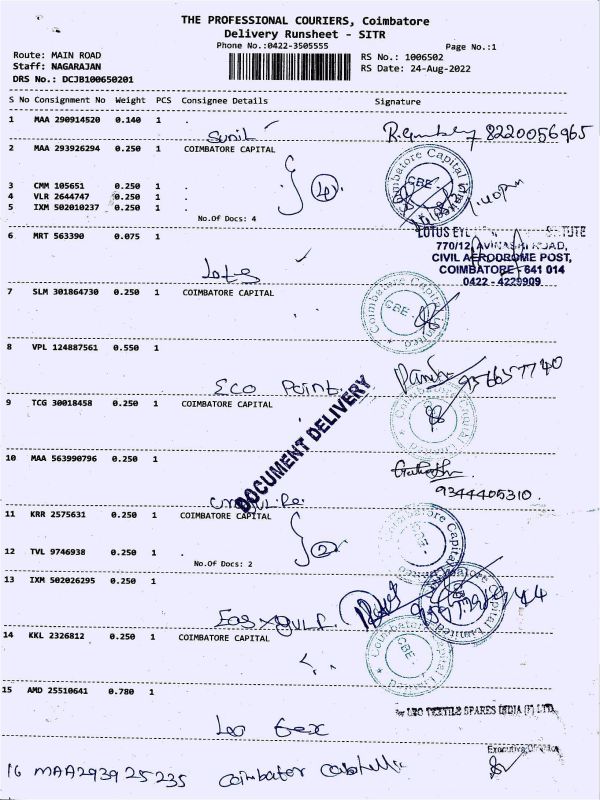 THE PROFESSIONAL COURIERS, Coimbatore
Delivery Runsheet - SITR
Phone No.:0422-3505555
Page No.:1
Route: MAIN ROAD
RS No.: 1006502
Staff: NAGARAJAN
RS Date: 24-Aug-2022
DRS No.: DCJB100650201
S No Consignment No Weight PCS Consignee Details Signature
1 MAA 290914520 0.140 1 .
Sunil 8220056965
2 MAA 293926294 0.250 1 COIMBATORE CAPITAL
Coimbatore Capital Limited
CBE
3 CMM 105651 0.250 1 .
4 VLR 2644747 0.250 1 .
5 IXM 502010237 0.250 1 .
4
1.40pm
No.Of Docs: 4
6 MRT 563390 0.075 1 .
LOTUS EYE
770/12, AVINASHI ROAD,
CIVIL AERODROME POST,
COIMBATORE - 641 014
0422 - 4229909
Lotus
7 SLM 301864730 0.250 1 COIMBATORE CAPITAL
Coimbatore Capital Limited
CBE
8 VPL 124887561 0.550 1 .
Eco Point
DOCUMENT DELIVERY
9 TCG 30018458 0.250 1 COIMBATORE CAPITAL
10 MAA 563990796 0.250 1 .
9344405310.
11 KRR 2575631 0.250 1 COIMBATORE CAPITAL
Coimbatore Capital
CBE
12 TVL 9746938 0.250 1 .
2
No.Of Docs: 2
13 IXM 502026295 0.250 1 .
14 KKL 2326812 0.250 1 COIMBATORE CAPITAL
CBE
15 AMD 25510641 0.780 1 .
for LEO TEXTILE SPARES INDIA (P) LTD.
Leo Tex
16 MAA293925235 Coimbator